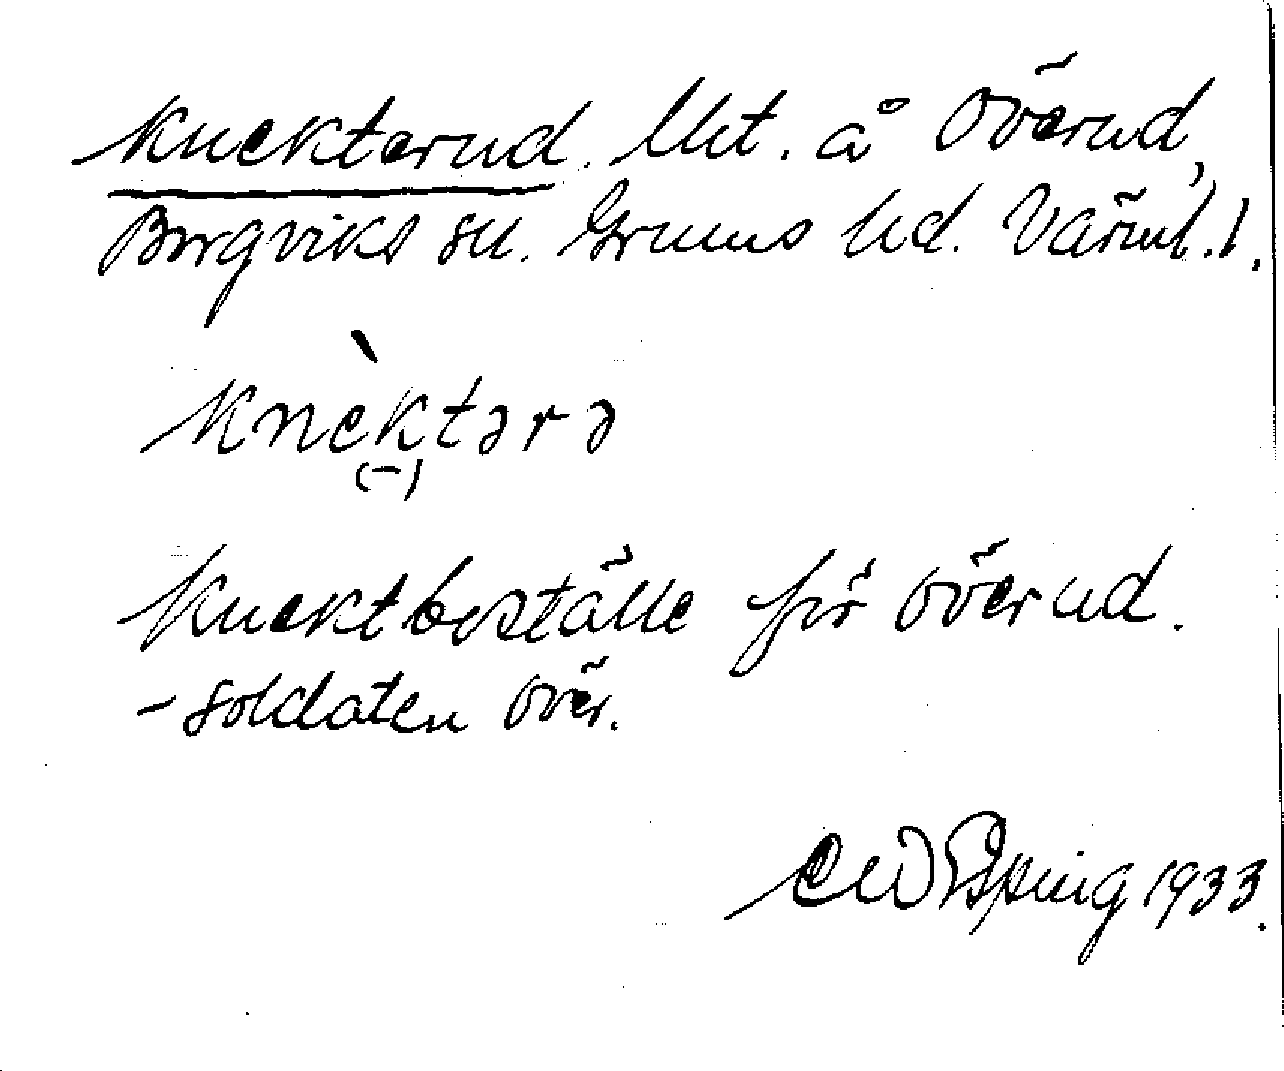 Knekterud. Lht. å Överud,
Borgviks sn. Grums hd. Värml. l.
Knèktərə
(-)
Knektbeställe för Överud.
- soldaten Över.
1933.